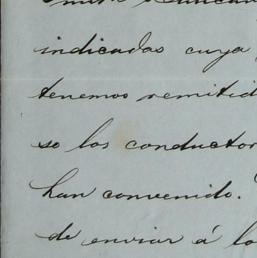 indicadas cuya
tenemos remitid
so los conductor
han convenido.
de enviar á lo